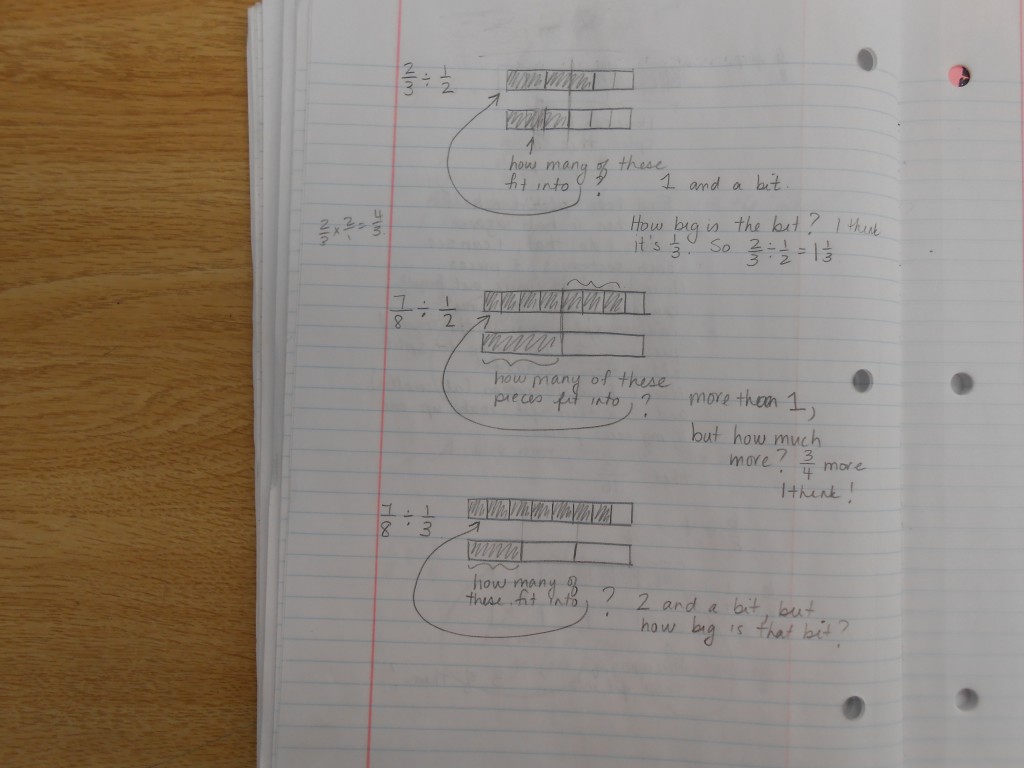 2/3 ÷ 1/2
how many of these
fit into ?
1 and a bit.
How big is the but? I think
it's 1/3. So 2/3 ÷ 1/2 = 1 1/3
2/3 × 2/1 = 4/3
7/8 ÷ 1/2
how many of these
pieces fit into ?
more than 1,
but how much
more? 3/4 more
I think!
7/8 ÷ 1/3
how many of
these fit into ?
2 and a bit, but
how big is that bit?